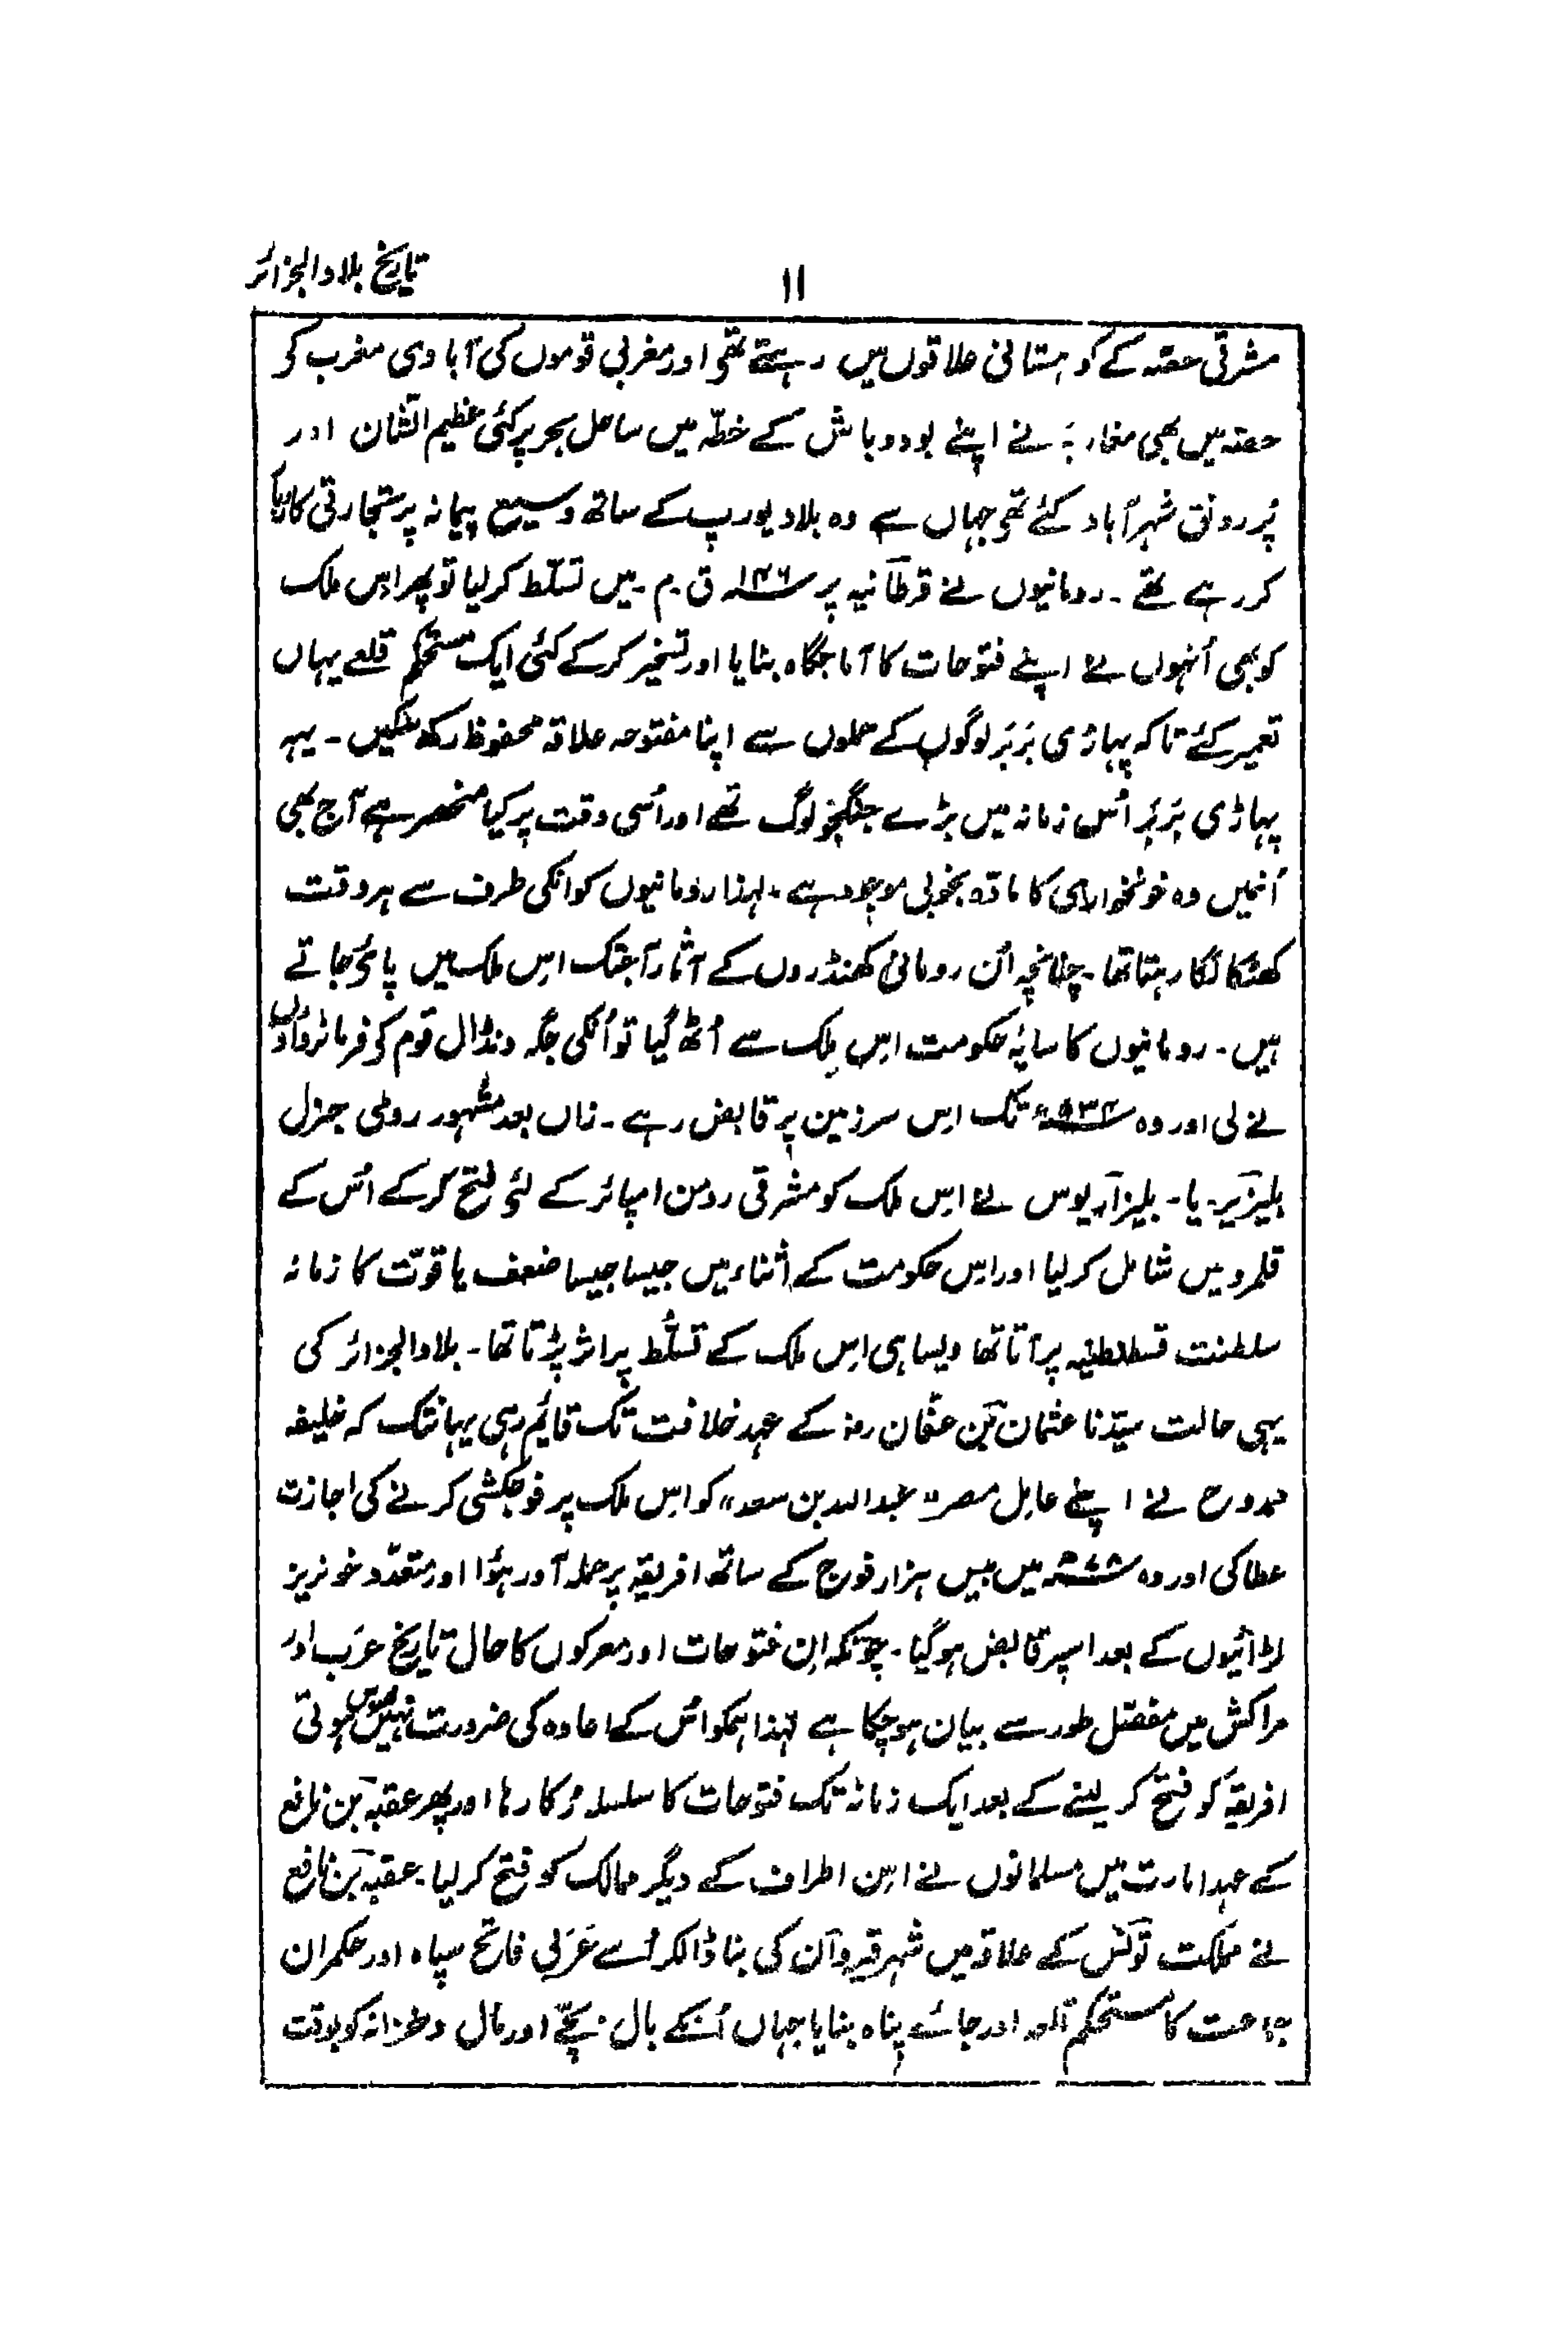 تاریخ بلاد الجزائر
۱۱
مشرقی حصہ کے کوہستانی علاقوں میں رہتے تھے اور مغربی قوموں کی آبادی مغرب کی
حصہ میں بھی مغاربہ نے اپنے بود و باش کے خطّہ میں ساحل بحر پر کئی عظیم الشان اور
پُر رونق شہر آباد کئے تھے جہاں سے وہ بلاد یورپ کے ساتھ وسیع پیمانہ پر تجارتی کاروبار
کر رہے تھے ۔ رومانیوں نے قرطآنیہ پر ۱۴۶؁ ق ۔ م ۔ میں تسلّط کر لیا تو پھر اِس ملک
کو بھی اُنہوں نے اپنے فتوحات کا آماجگاہ بنایا اور تسخیر کر کے کئی ایک مستحکم قلعے یہاں
تعمیر کئے تاکہ پہاڑی بَربَر لوگوں کے حملوں سے اپنا مفتوحہ علاقہ محفوظ رکھ سکیں ۔ یہہ
پہاڑی بَربَر اُس زمانہ میں بڑے جنگجو لوگ تھے اور اُسی وقت پر کیا منحصر ہے آج بھی
اُنمیں وہ خونخواری کا مادّہ بخوبی موجود ہے ۔ لہذا رومانیوں کو انکی طرف سے ہر وقت
کھٹکا لگا رہتا تھا ۔ چنانچہ اُن رومانی کھنڈروں کے آثار آجتک اِس ملک میں پائے جاتے
ہیں ۔ رومانیوں کا سایۂ حکومت اِس مِلک سے اُٹھ گیا تو اُنکی جگہ ونڈال قوم کی فرمانرواؤں
نے لی اور وہ ۵۳۴؁ء تک اِس سرزمین پر قابض رہے ۔ زاں بعد مشہور رومی جنرل
بلیزیر ۔ یا ۔ بلیزآریوس نے اِس ملک کو مشرقی رومن امپائر کے لئے فتح کر کے اُس کے
قلمرو میں شامل کر لیا اور اِس حکومت کے اثناء میں جیسا جیسا ضعف یا قوّت کا زمانہ
سلطنت قسطنطنیہ پر آتا تھا ویسا ہی اِس ملک کے تسلُّط پر اثر پڑتا تھا ۔ بلاد الجزائر کی
یہی حالت سیّدنا عثمان بن عفّان رضہ کے عہد خلافت تک قایم رہی یہانتک کہ خلیفہ
ممدوح نے اپنے عامل مصر ’’عبد اللہ بن سعد‘‘ کو اِس ملک پر فوجکشی کرنے کی اجازت
عطا کی اور وہ میں بیس ہزار فوج کے ساتھ افریقہ پر حملہ آور ہُوا اور متعدّد خونریز
لڑائیوں کے بعد اسپر قابض ہو گیا ۔ چونکہ اِن فتوحات اور معرکوں کا حال تاریخ عَرَب اور
مراکش میں مفصّل طور سے بیان ہو چکا ہے لہٰذا ہمکو اُس کے اعادہ کی ضرورت نہیں محسوس ہوتی
افریقہ کو فتح کر لینے کے بعد ایک زمانہ تک فتوحات کا سلسلہ رُکا رہا اور پھر عقبہ بن نافع
کے عہد امارت میں مسلمانوں نے اِن اطراف کے دیگر ممالک کو فتح کر لیا ۔ عقبہ بن نافع
نے مملکت تُونس کے علاقہ میں شہر قیروآن کی بنا ڈالکر اُسے عَرَبی فاتح سپاہ اور حکمران
جماعت کا مستحکم قلعہ اور جائے پناہ بنایا جہاں اُنکے بال بچّے اور مال و خزانہ کو بوقت